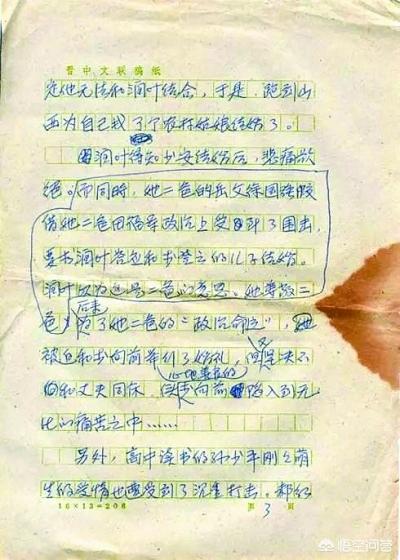 晋中文联稿纸
定他无法和润叶结合，于是，跑到山
西为自己找了个农村姑娘结婚了。
润叶得知少安结婚后，悲痛欲
绝。而同时，她二爸的岳父徐国强
借她二爸田福军政治上受到了围击，
要求润叶答应和
儿子结婚。
润叶以为这是二爸的意思。她尊敬二
后来
爸，为了她二爸的“政治命运”，她
被迫和李向前举行了婚礼，但是决不
心地善良的
同和丈夫同床，李向前陷入到无
比的痛苦之中……
另外，高中读书的孙少平刚刚萌
生的爱情也遭受到了沉重打击。郝红
16×13=208
页 3 页
悟空问答